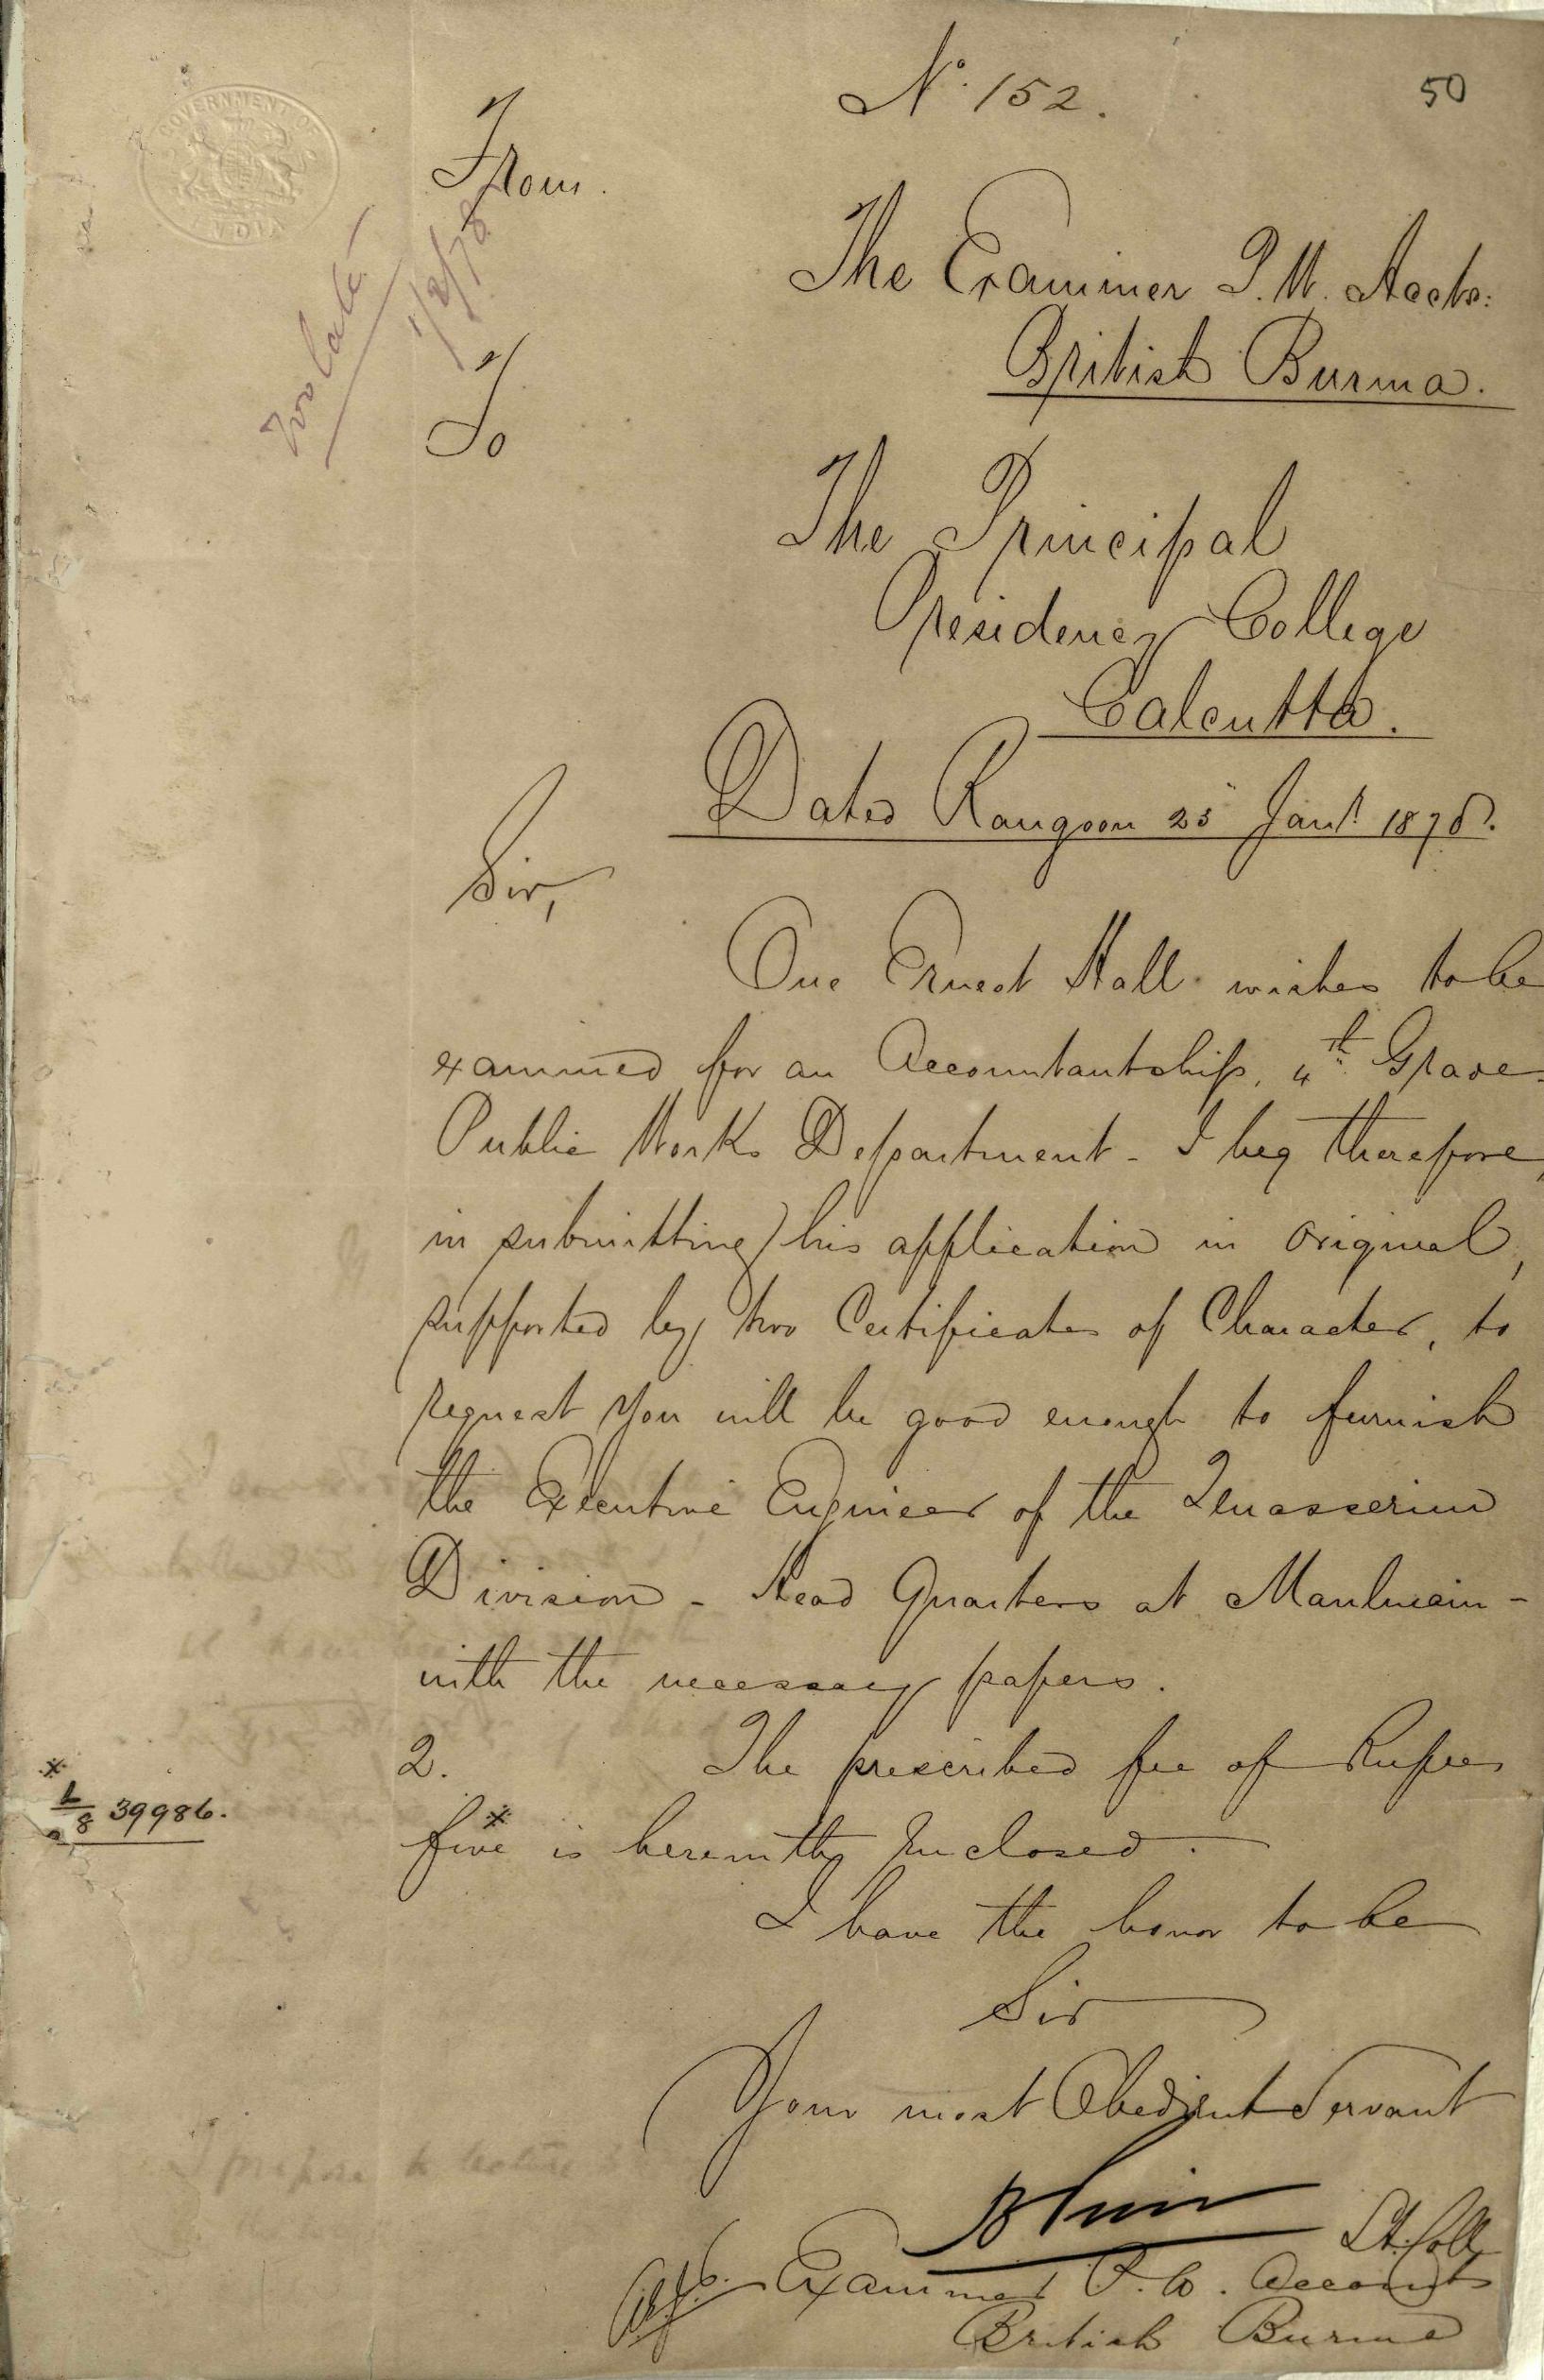 No. 152.
50
GOVERNMENT OF INDIA
From.
The Examiner P. W. Accts:
British Burma.
Too late
1/2/78
To
The Principal
Presidency College
Calcutta.
Dated Rangoon 25" Jany. 1878.
Sir,
One Ernest Hall wishes to be
examined for an Accountantship, 4th Grade
Public Works Department - I beg therefore,
in submitting his application in original,
supported by two Certificates of Character, to
request you will be good enough to furnish
the Executive Engineer of the Tenasserim
Division - Head Quarters at Maulmain -
with the necessary papers.
2. The prescribed fee of Rupees
five * is herewith Inclosed.
* L/8 39986.
I have the honor to be
Sir
Your most Obedient Servant
Lt. Coll
Examiner P. W. Accounts
British Burma